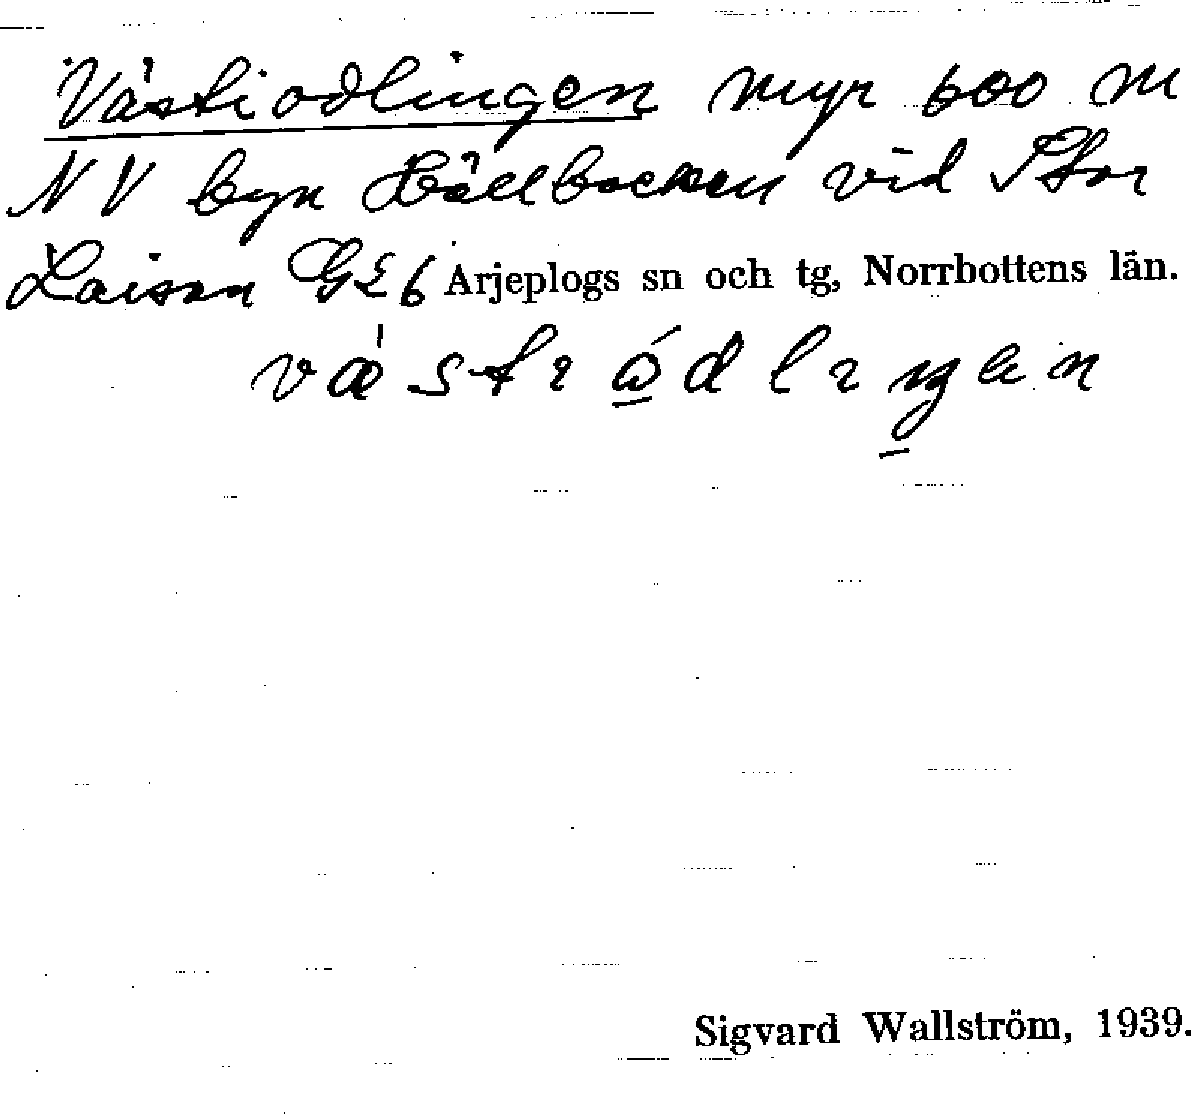 Västiodlingen myr 600 m
NV byn Hällbacken vid Stor
Laisan G26 Arjeplogs sn och tg, Norrbottens län.
Sigvard Wallström, 1939.